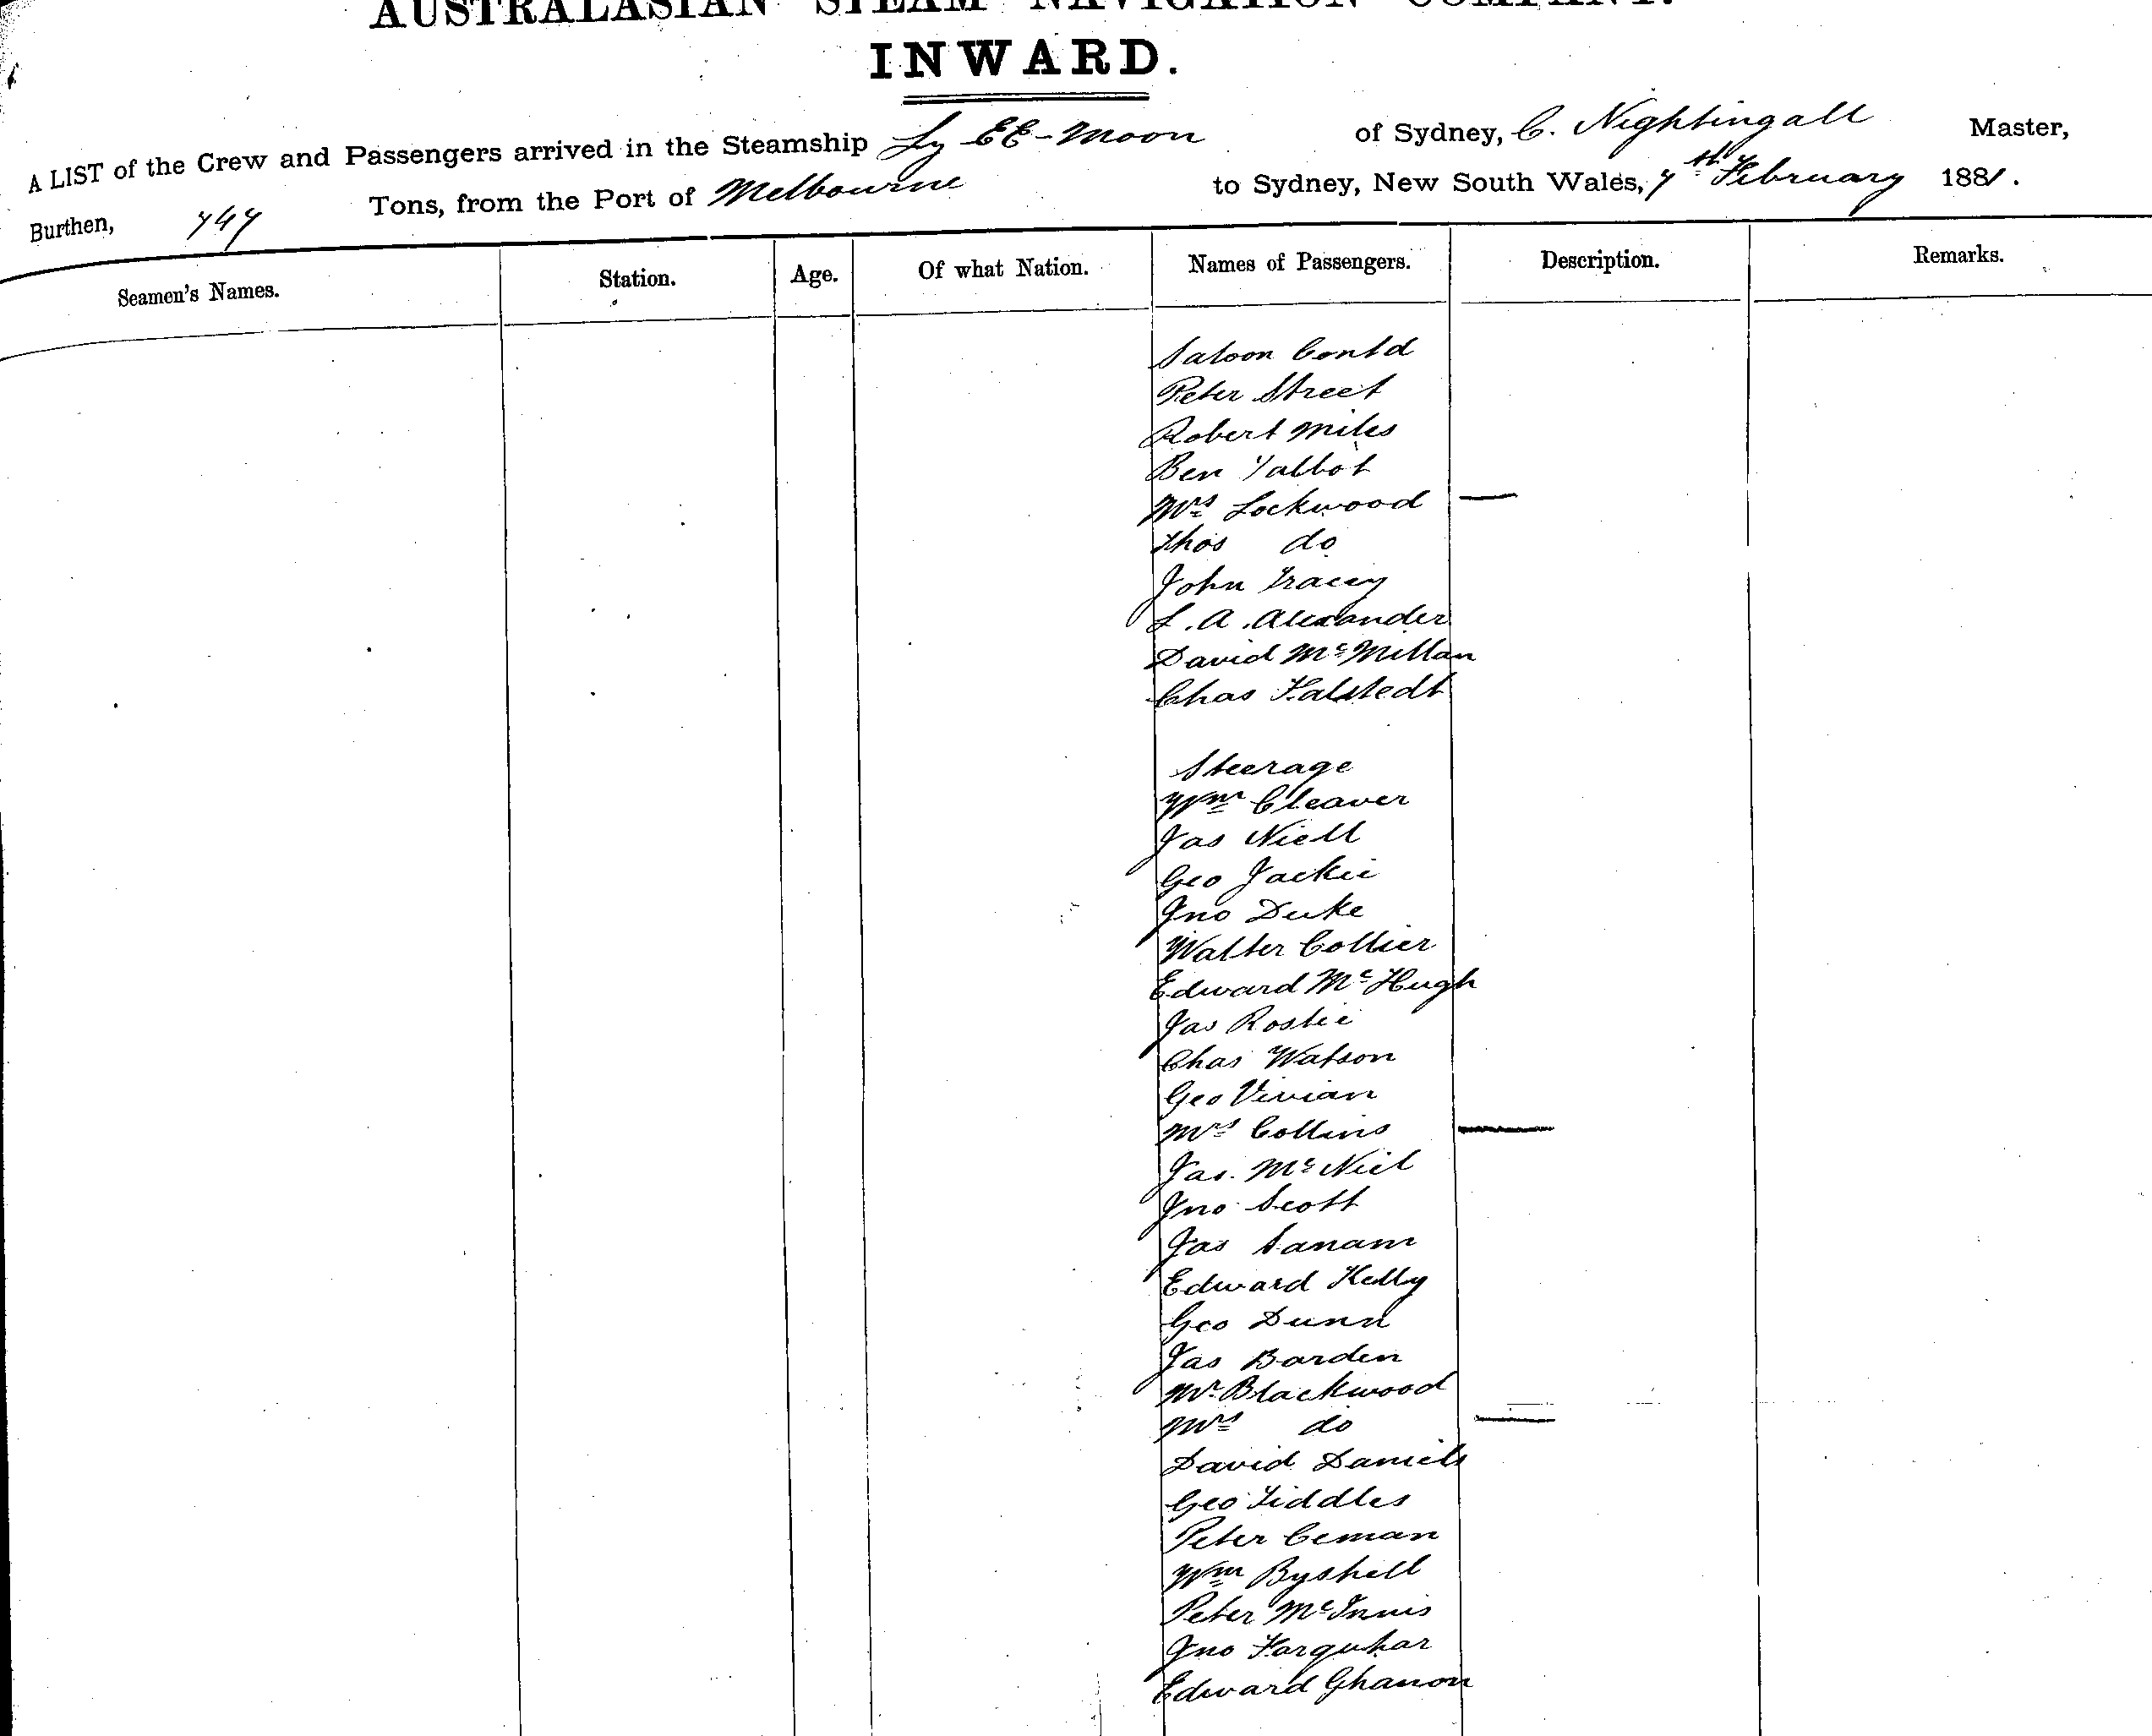 AUSTRALASIAN STEAM NAVIGATION COMPANY.
INWARD.
A LIST of the Crew and Passengers arrived in the Steamship Ly-EE-Moon of Sydney, C. Nightingall Master,
Burthen, 747 Tons, from the Port of Melbourne to Sydney, New South Wales, 7th February 1881.
Seamen's Names. Station. Age. Of what Nation. Names of Passengers. Description. Remarks.
Saloon Contd
Peter Street
Robert Miles
Ben Talbot
Mrs Lockwood —
Thos do
John Tracey
L. A. Alexander
David McMillan
Chas Halstedt
Steerage
Wm Cleaver
Jas Niell
Geo Jackie
Jno Duke
Walter Collier
Edward McHugh
Jas Rostie
Chas Watson
Geo Vivian
Mrs Collins —
Jas. McNiel
Jno Scott
Jas Sanam
Edward Kelly
Geo Dunn
Jas Barden
Mr Blackwood
Mrs do —
David Daniels
Geo Tiddles
Peter Ceman
Wm Byshell
Peter McInnis
Jno Farquhar
Edward Ghanon